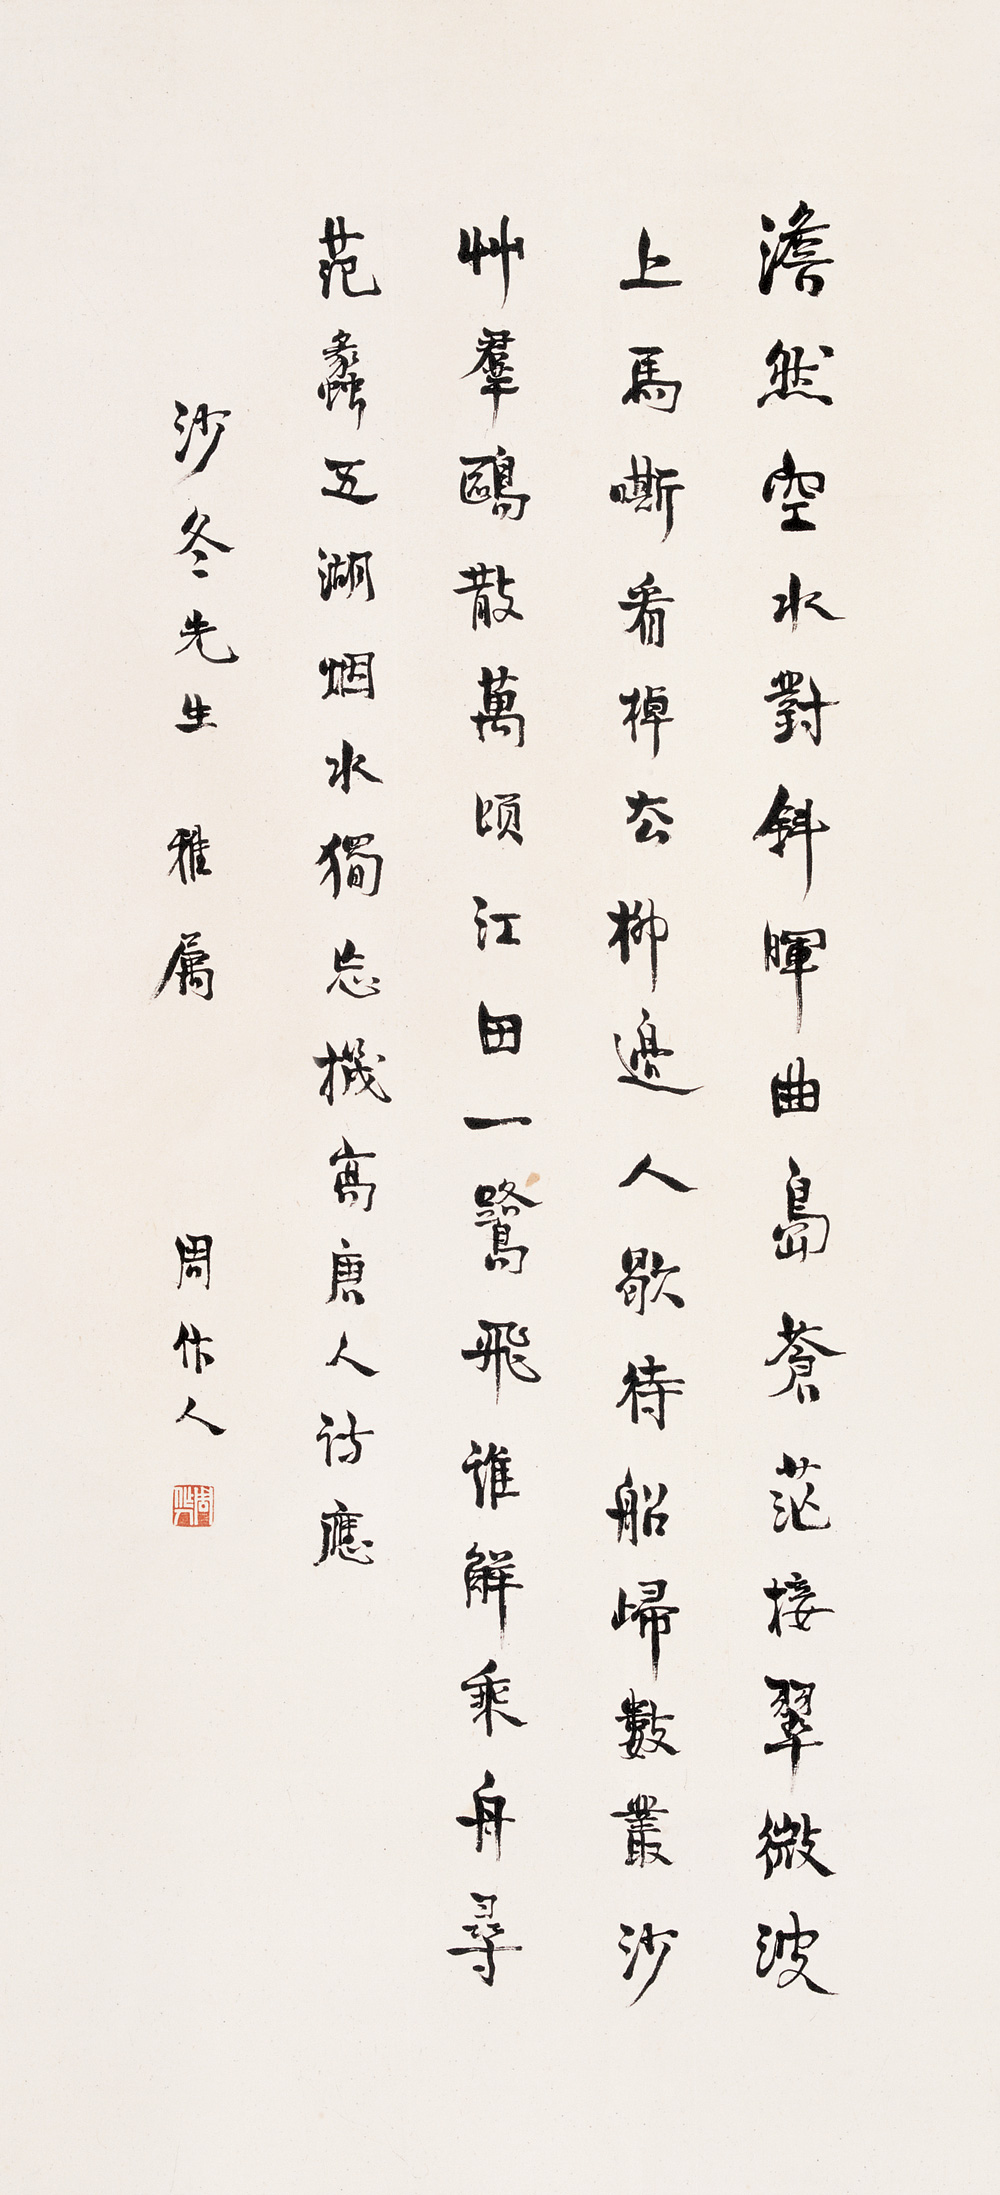 澹然空水對斜暉曲島蒼茫接翠微波
上馬嘶看棹去柳邊人歇待船歸數叢沙
艸羣鷗散萬頃江田一鷺飛誰解乘舟尋
范蠡五湖烟水獨忘機寫唐人詩應
沙冬先生 雅屬 周作人
周作人